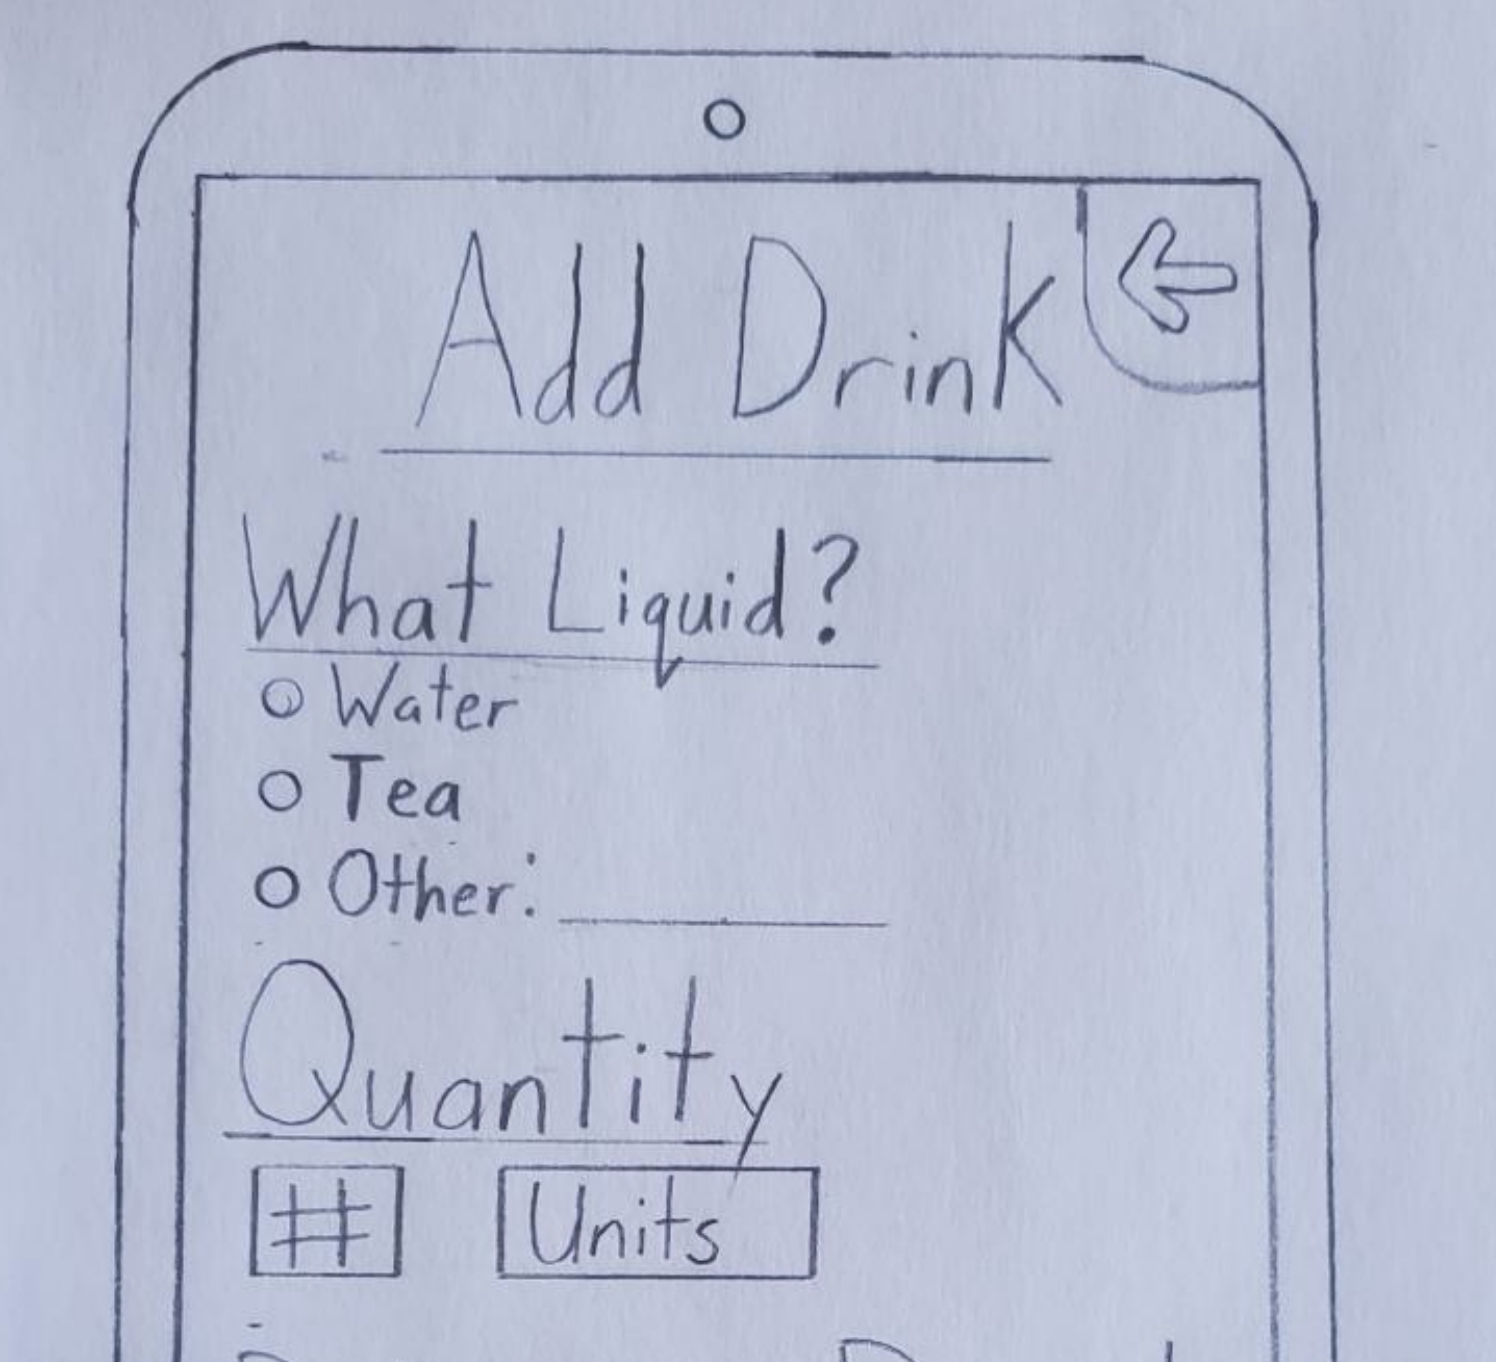 Add Drink
What Liquid?
Water
Tea
Other:
Quantity
# Units